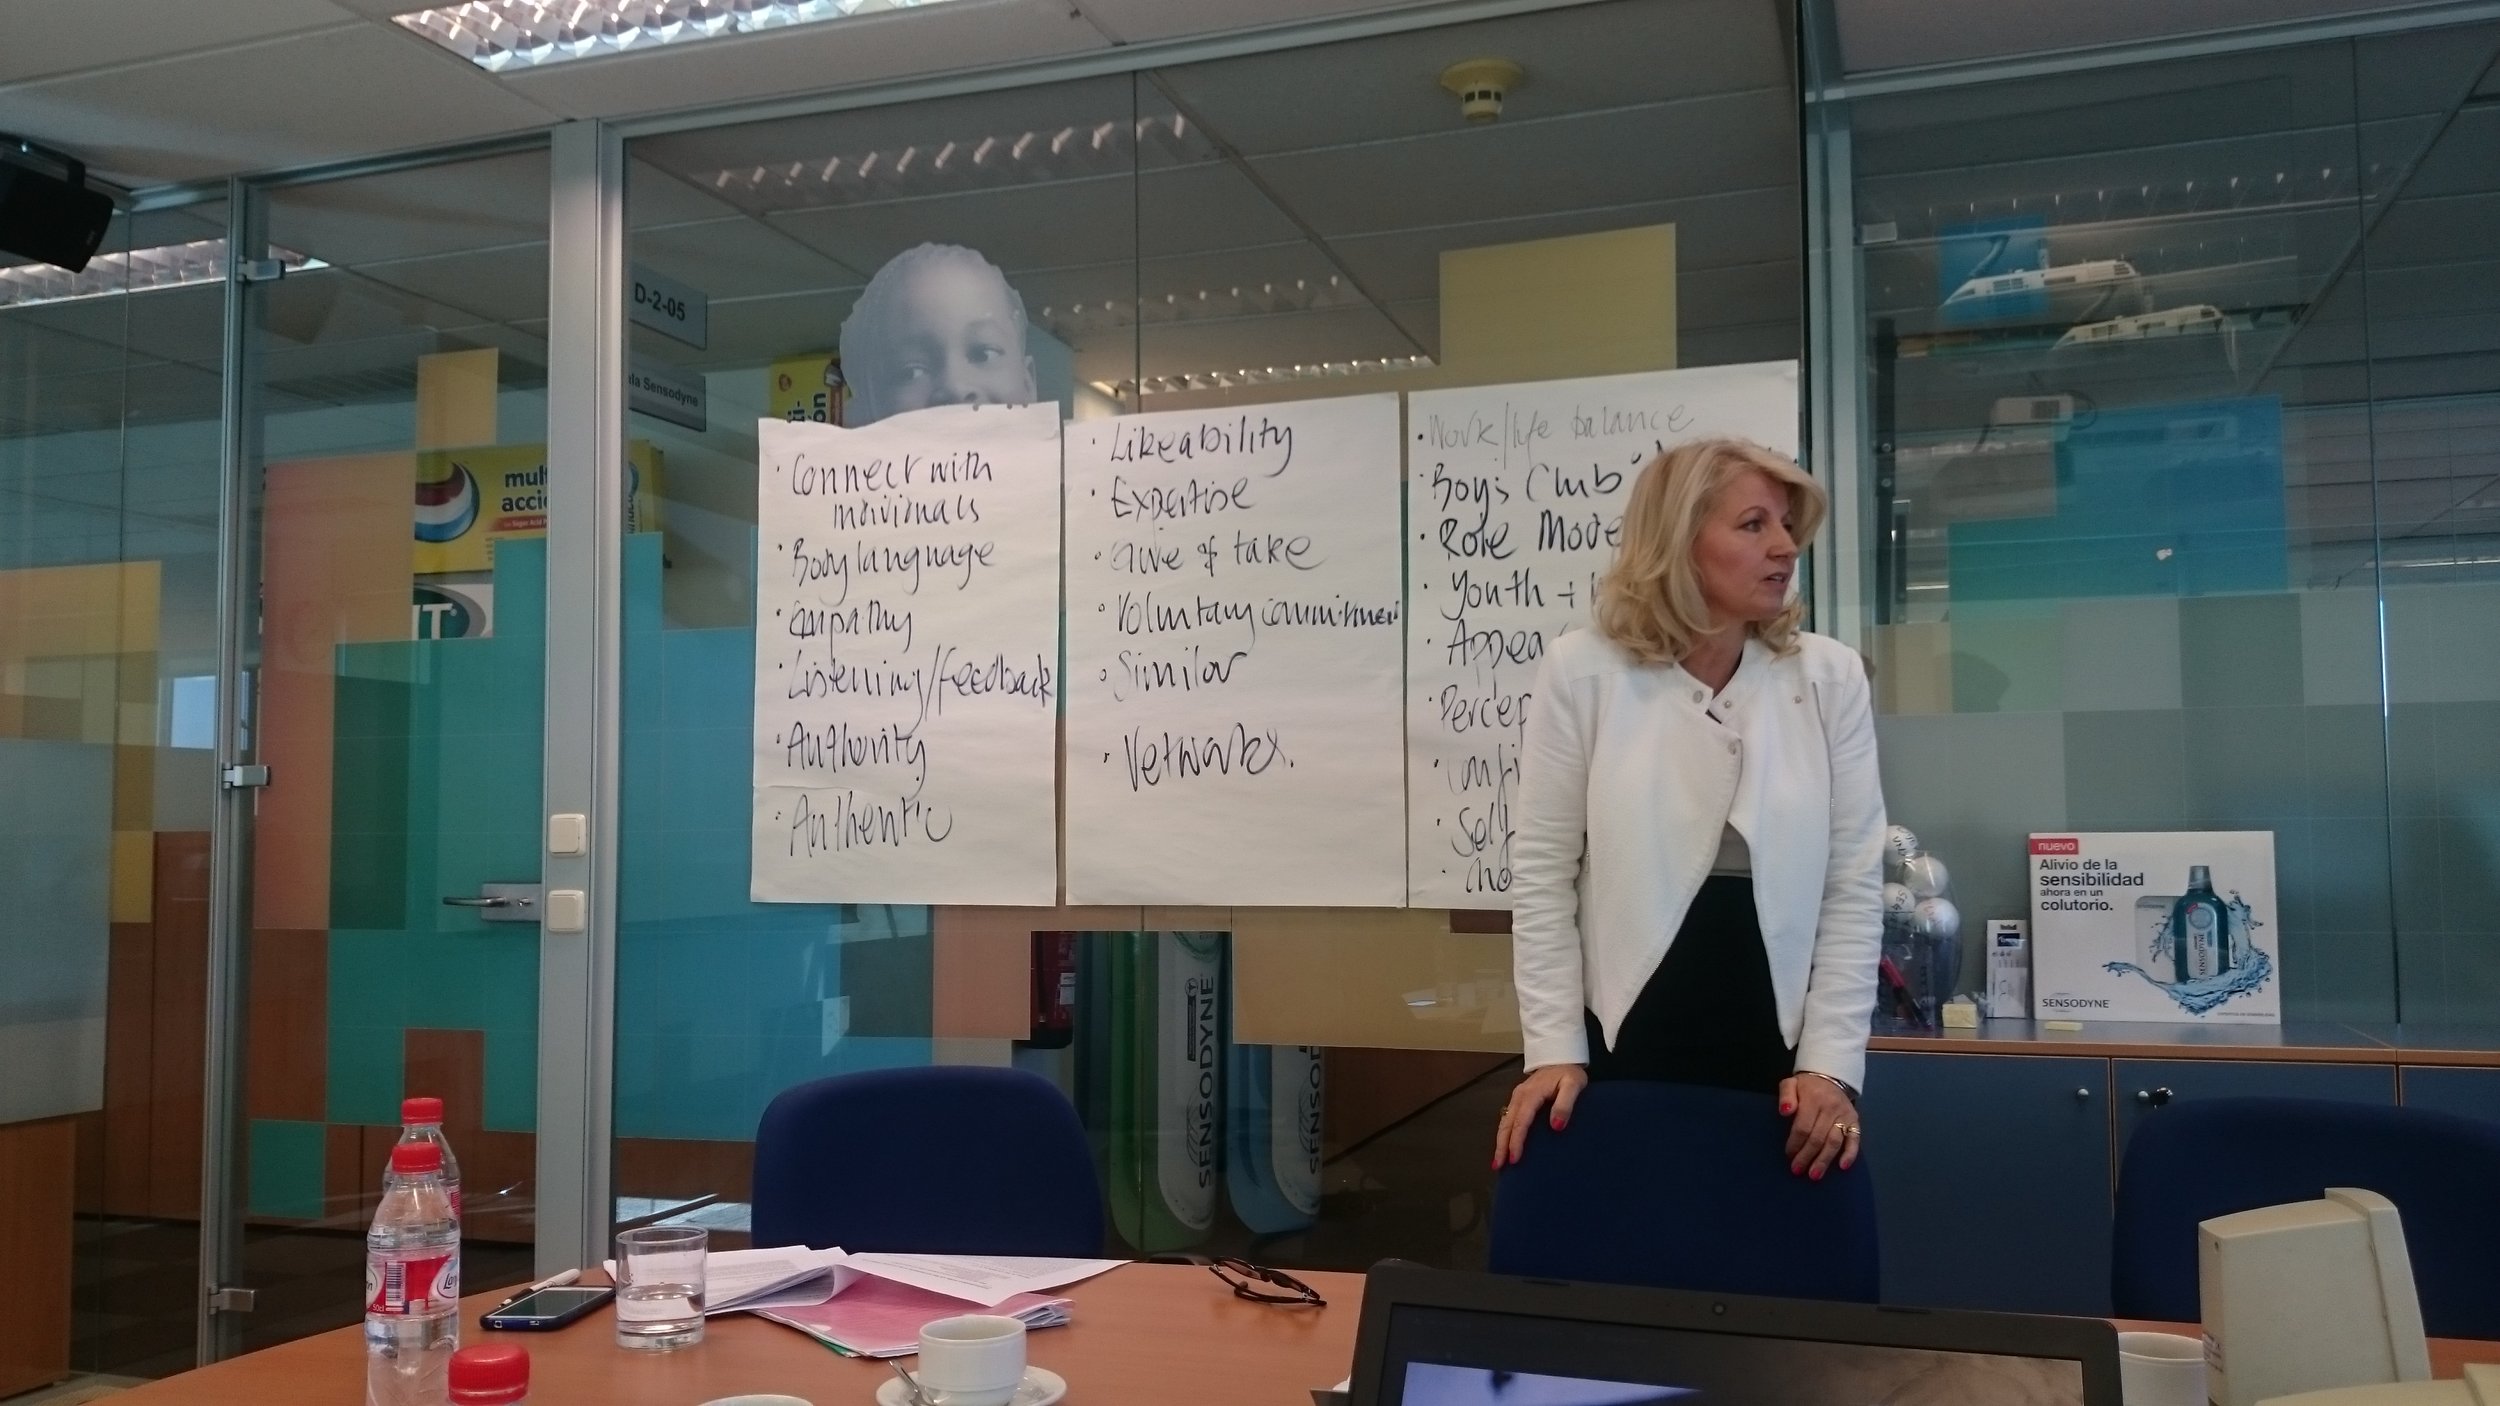 D-2-05
Sensodyne
mul
acci
IT
· Connect with
individuals
· Body language
· Empathy
· Listening/feedback
· Authority
· Authentic
· Likeability
· Expertise
· Give & take
· Voluntary commitment
· Similar
· Networks.
· Work/life balance
· Boy's Club
· Role Mode
· Youth +
· Appea
· Percep
· Confi
· Self
SENSODYNE
SENSODYNE
nuevo
Alivio de la
sensibilidad
ahora en un
colutorio.
SENSODYNE
SENSODYNE
50cl